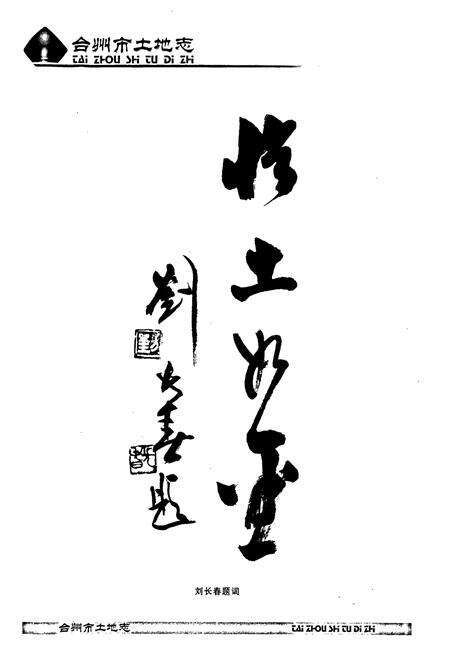 台州市土地志
TAI ZHOU SHI TU DI ZHI
惜土如金
劉长春题
刘长春题词
台州市土地志
TAI ZHOU SHI TU DI ZHI